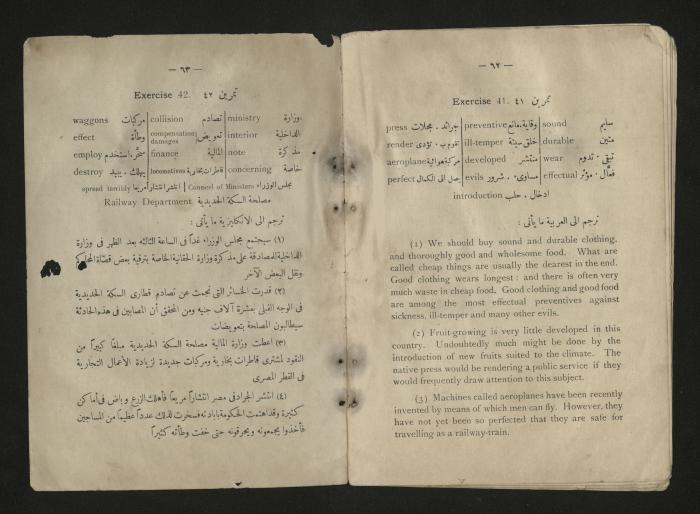 — ٦٢ —
Exercise 41. تمرين ٤١
press جرائد . مجلات preventive وقاية.مانع sound سليم
render تقوم ب . تؤدى ill-temper خلق سيئة durable متين
aeroplane مركبة هوائية developed منتشر wear تبقى . تدوم
perfect يصل الى الكمال evils مساوىء . شرور effectual فعَّال . مؤثر
introduction ادخال . جلب
ترجم الى العربية ما يأتى :
(1) We should buy sound and durable clothing,
and thoroughly good and wholesome food. What are
called cheap things are usually the dearest in the end.
Good clothing wears longest : and there is often very
much waste in cheap food. Good clothing and good food
are among the most effectual preventives against
sickness, ill-temper and many other evils.
(2) Fruit-growing is very little developed in this
country. Undoubtedly much might be done by the
introduction of new fruits suited to the climate. The
native press would be rendering a public service if they
would frequently draw attention to this subject.
(3) Machines called aeroplanes have been recently
invented by means of which men can fly. However, they
have not yet been so perfected that they are safe for
travelling as a railway-train.
— ٦٣ —
Exercise 42. تمرين ٤٢
waggons مركبات collision تصادم ministry وزارة
effect وطأة compensation damages تعويض interior الداخلية
employ سخَّر.استخدم finance المالية note مذكرة
destroy يهلك . يبيد locomotives قاطرات بخارية concerning خاصة
spread terribly انتشر انتشاراً مريعاً Council of Ministers مجلس الوزراء
Railway Department مصلحة السكة الحديدية
ترجم الى الانكليزية ما يأتى :
(١) سيجتمع مجلس الوزراء غداً فى الساعة الثالثه بعد الظهر فى وزارة
الداخلية لمصادقة على مذكرة وزارة الحقانية الخاصة بترقية بعض قضاة المحاكم
ونقل البعض الآخر
(٢) قدرت الخسائر التى نجمت عن تصادم قطارى السكة الحديدية
فى الوجه القبلى بعشرة آلاف جنيه ومن المحقق أن المصابين فى هذه الحادثة
سيطالبون المصلحة بتعويضات
(٣) اعطت وزارة المالية مصلحة السكة الحديدية مبلغاً كبيراً من
النقود لمشترى قاطرات بخارية ومركبات جديدة لزيادة الأعمال التجارية
فى القطر المصرى
(٤) انتشر الجراد فى مصر انتشاراً مريعاً فأهلك الزرع وباض فى أماكن
كثيرة وقد اهتمت الحكومة بابادته فسخرت لذلك عدداً عظيماً من المساجين
فأخذوا يجمعونه ويحرقونه حتى خفت وطأته كثيراً